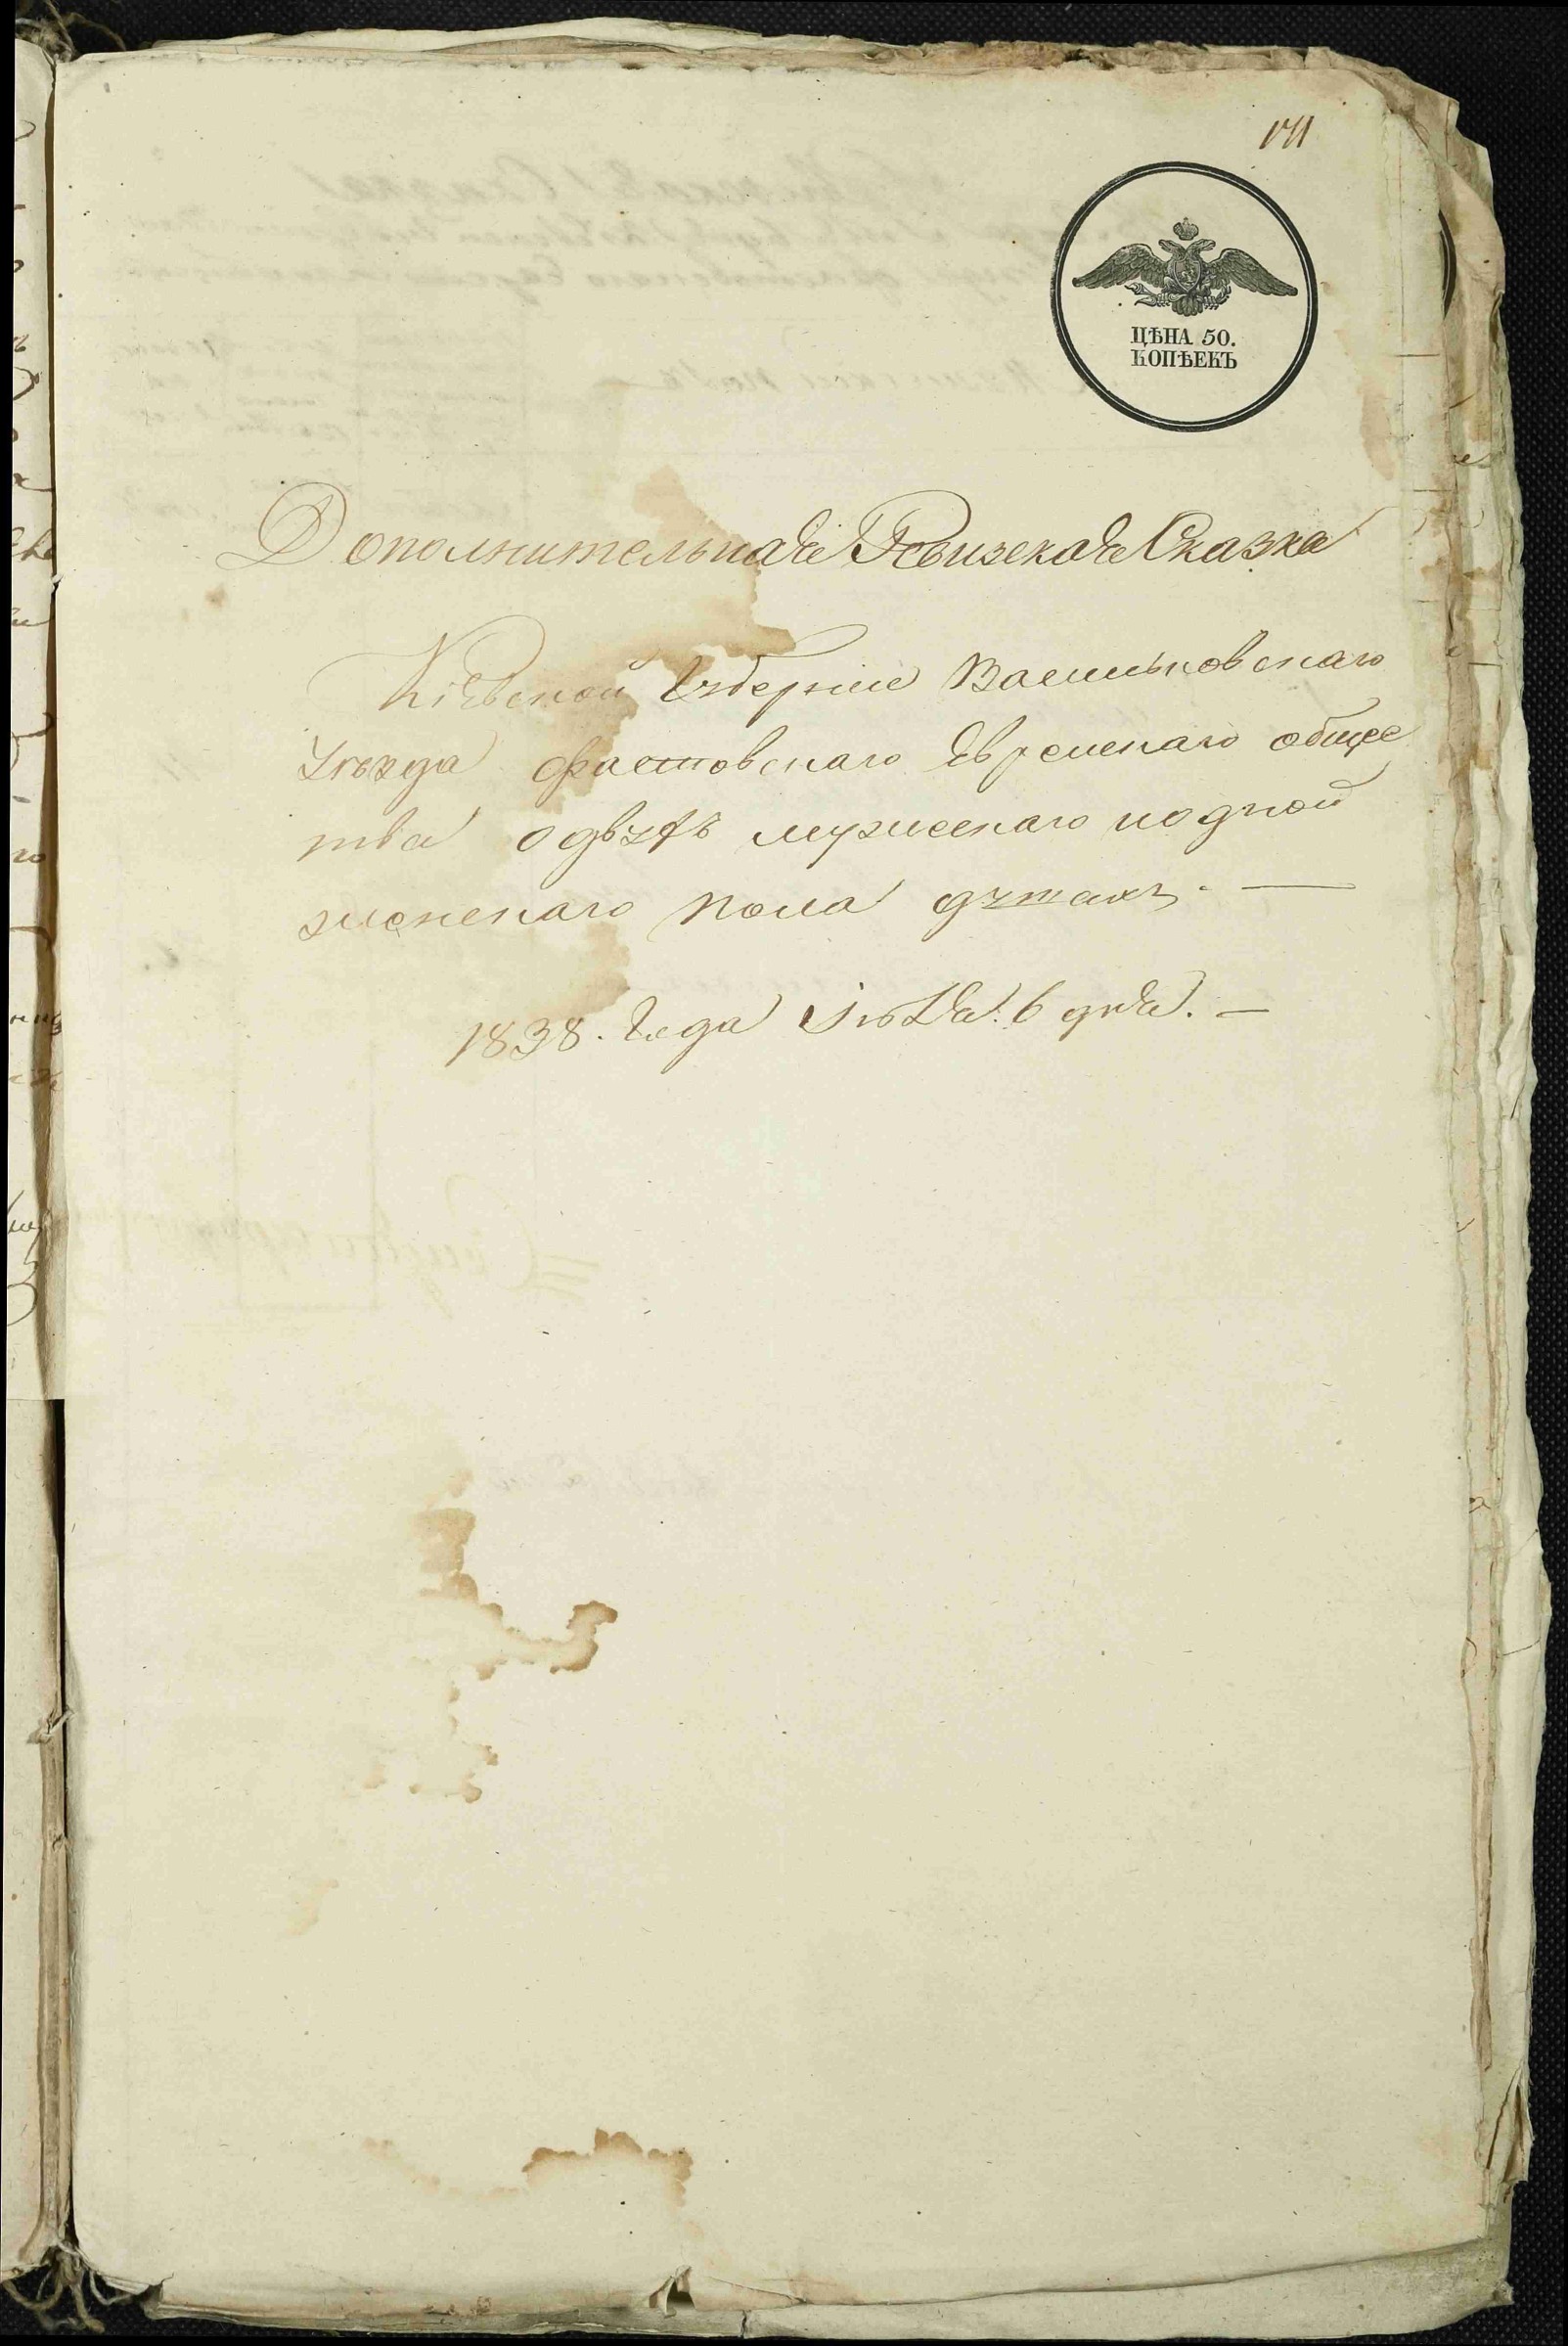 ЦѢНА 50.
КОПѢЕКЪ
Дополнительная Ревизская Сказка
Кіевской Губерніи Васильковскаго
Уѣзда Фастовскаго Еврейскаго общес
тва о двухъ мужескаго и одной
женскаго пола душахъ. —
1838. Года Іюля 6 дня. —